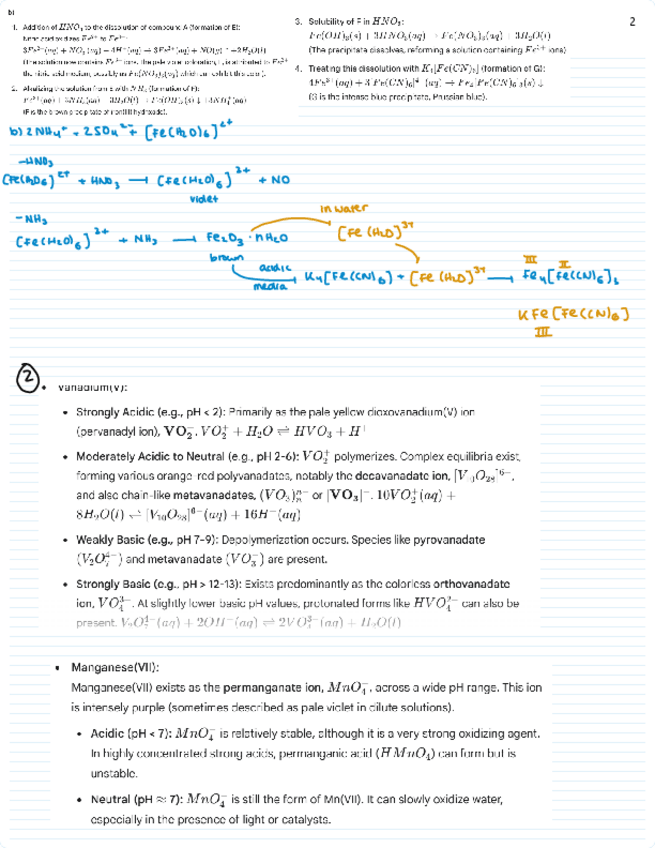 2
b)
1. Addition of HNO₃ to the dissolution of compound A (formation of E):
Nitric acid oxidizes Fe²⁺ to Fe³⁺:
3Fe²⁺(aq) + NO₃⁻(aq) + 4H⁺(aq) → 3Fe³⁺(aq) + NO(g) + 2H₂O(l)
(The solution now contains Fe³⁺ ions. The pale violet coloration, is attributed to Fe³⁺
the nitric acid medium, possibly as which can exhibit this color).
2. Alkalizing the solution from E with NH₃ (formation of F):
Fe³⁺(aq) + 3NH₃(aq) + 3H₂O(l) → Fe(OH)₃(s) ↓ + 3NH₄⁺(aq)
(F is the brown precipitate of iron(III) hydroxide).
3. Solubility of F in HNO₃:
Fe(OH)₃(s) + 3HNO₃(aq) → Fe(NO₃)₃(aq) + 3H₂O(l)
(The precipitate dissolves, reforming a solution containing Fe³⁺ ions)
4. Treating this dissolution with K₄[Fe(CN)₆] (formation of G):
4Fe³⁺(aq) + 3[Fe(CN)₆]⁴⁻(aq) → Fe₄[Fe(CN)₆]₃(s) ↓
(G is the intense blue precipitate, Prussian blue).
b) 2NH₄⁺ + 2SO₄²⁻ + [Fe(H₂O)₆]²⁺
-HNO₃
[Fe(H₂O)₆]²⁺ + HNO₃ → [Fe(H₂O)₆]³⁺ + NO
violet
-NH₃
[Fe(H₂O)₆]³⁺ + NH₃ → Fe₂O₃ · nH₂O
brown
in water
[Fe(H₂O)]³⁺
acidic
media
K₄[Fe(CN)₆] + [Fe(H₂O)]³⁺ → Fe₄[Fe(CN)₆]₃
III II
KFe[Fe(CN)₆]
III
②
• Vanadium(V):
• Strongly Acidic (e.g., pH < 2): Primarily as the pale yellow dioxovanadium(V) ion
(pervanadyl ion), VO₂⁺. VO₂⁺ + H₂O ⇌ HVO₃ + H⁺
• Moderately Acidic to Neutral (e.g., pH 2-6): VO₂⁺ polymerizes. Complex equilibria exist,
forming various orange-red polyvanadates, notably the decavanadate ion, [V₁₀O₂₈]⁶⁻,
and also chain-like metavanadates, (VO₃)ₙⁿ⁻ or [VO₃]⁻. 10VO₂⁺(aq) +
8H₂O(l) ⇌ [V₁₀O₂₈]⁶⁻(aq) + 16H⁺(aq)
• Weakly Basic (e.g., pH 7-9): Depolymerization occurs. Species like pyrovanadate
(V₂O₇⁴⁻) and metavanadate (VO₃⁻) are present.
• Strongly Basic (e.g., pH > 12-13): Exists predominantly as the colorless orthovanadate
ion, VO₄³⁻. At slightly lower basic pH values, protonated forms like HVO₄²⁻ can also be
present. V₂O₇⁴⁻(aq) + 2OH⁻(aq) ⇌ 2VO₄³⁻(aq) + H₂O(l)
• Manganese(VII):
Manganese(VII) exists as the permanganate ion, MnO₄⁻, across a wide pH range. This ion
is intensely purple (sometimes described as pale violet in dilute solutions).
• Acidic (pH < 7): MnO₄⁻ is relatively stable, although it is a very strong oxidizing agent.
In highly concentrated strong acids, permanganic acid (HMnO₄) can form but is
unstable.
• Neutral (pH ≈ 7): MnO₄⁻ is still the form of Mn(VII). It can slowly oxidize water,
especially in the presence of light or catalysts.